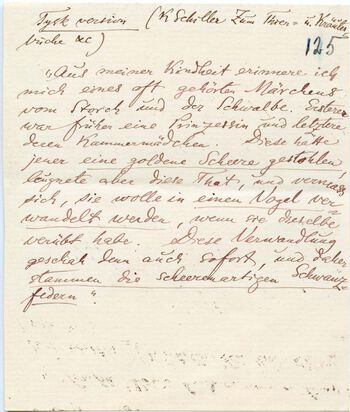 Tysk version (K Schiller Zum Thier- u. Kräuter
buche &c)
125
"Aus meiner Kindheit erinnere ich
mich eines oft gehörten Märchens
vom Storch und der Schwalbe. Esterer
war früher eine Prinzessin und letztere
deren Kammermädchen. Diese hatte
jener eine goldene Scheere gestohlen,
läugnete aber diese That, und vermass
sich, sie wolle in einen Vogel ver-
wandelt werden, wenn sie dieselbe
verübt habe. Diese Verwandlung
geschah denn auch sofort, und daher
stammen die scheerenartigen Schwanz-
federn".